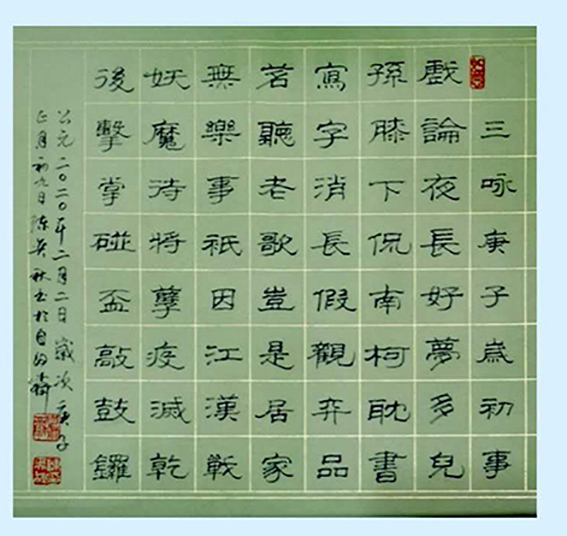 三咏庚子歲初事
戲論夜長好夢多兒
孫膝下侃南柯耽書
寫字消長假觀弈品
茗聽老歌豈是居家
無樂事祇因江漢戰
妖魔待將孽疫滅乾
後擊掌碰盃敲鼓鑼
公元二〇二〇年二月二日歲次庚子
正月初九日陈英秋书於自